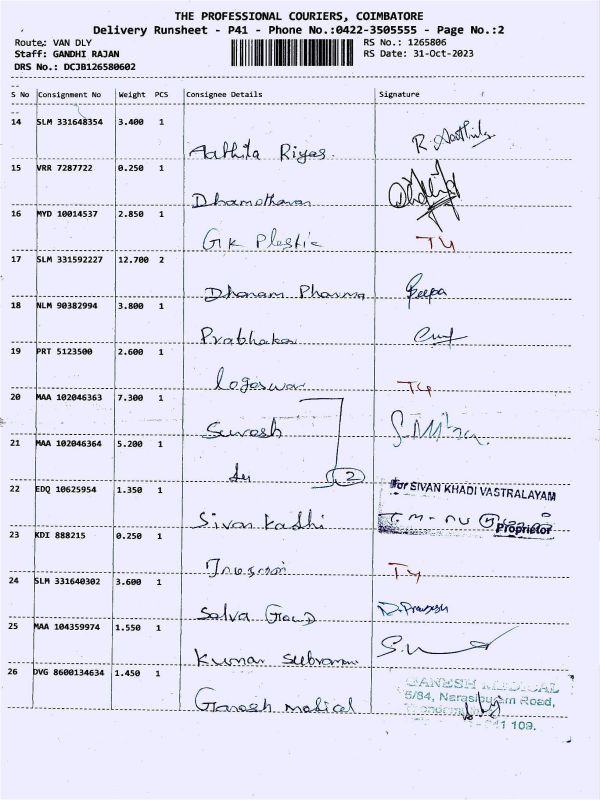 THE PROFESSIONAL COURIERS, COIMBATORE
Delivery Runsheet - P41 - Phone No.:0422-3505555 - Page No.:2
Route: VAN DLY RS No.: 1265806
Staff: GANDHI RAJAN RS Date: 31-Oct-2023
DRS No.: DCJB126580602
S No Consignment No Weight PCS Consignee Details Signature
14 SLM 331648354 3.400 1
Aathila Riyas.
15 VRR 7287722 0.250 1
Dhamotharan
16 MYD 10014537 2.850 1
GK Plastic T4
17 SLM 331592227 12.700 2
Dhanam Pharma Deepa
18 NLM 90382994 3.800 1
Prabhakar
19 PRT 5123500 2.600 1
Logeswar T4
20 MAA 102046363 7.300 1
Suresh
21 MAA 102046364 5.200 1
2
22 EDQ 10625954 1.350 1
for SIVAN KHADI VASTRALAYAM
Sivan Kadhi
Proprietor
23 KDI 888215 0.250 1
T4
24 SLM 331640302 3.600 1
Salva
25 MAA 104359974 1.550 1
Kumar Subraman
26 DVG 8600134634 1.450 1
Ganesh medical
GANESH MEDICAL
5/84, Narasipuram Road,
641 109.